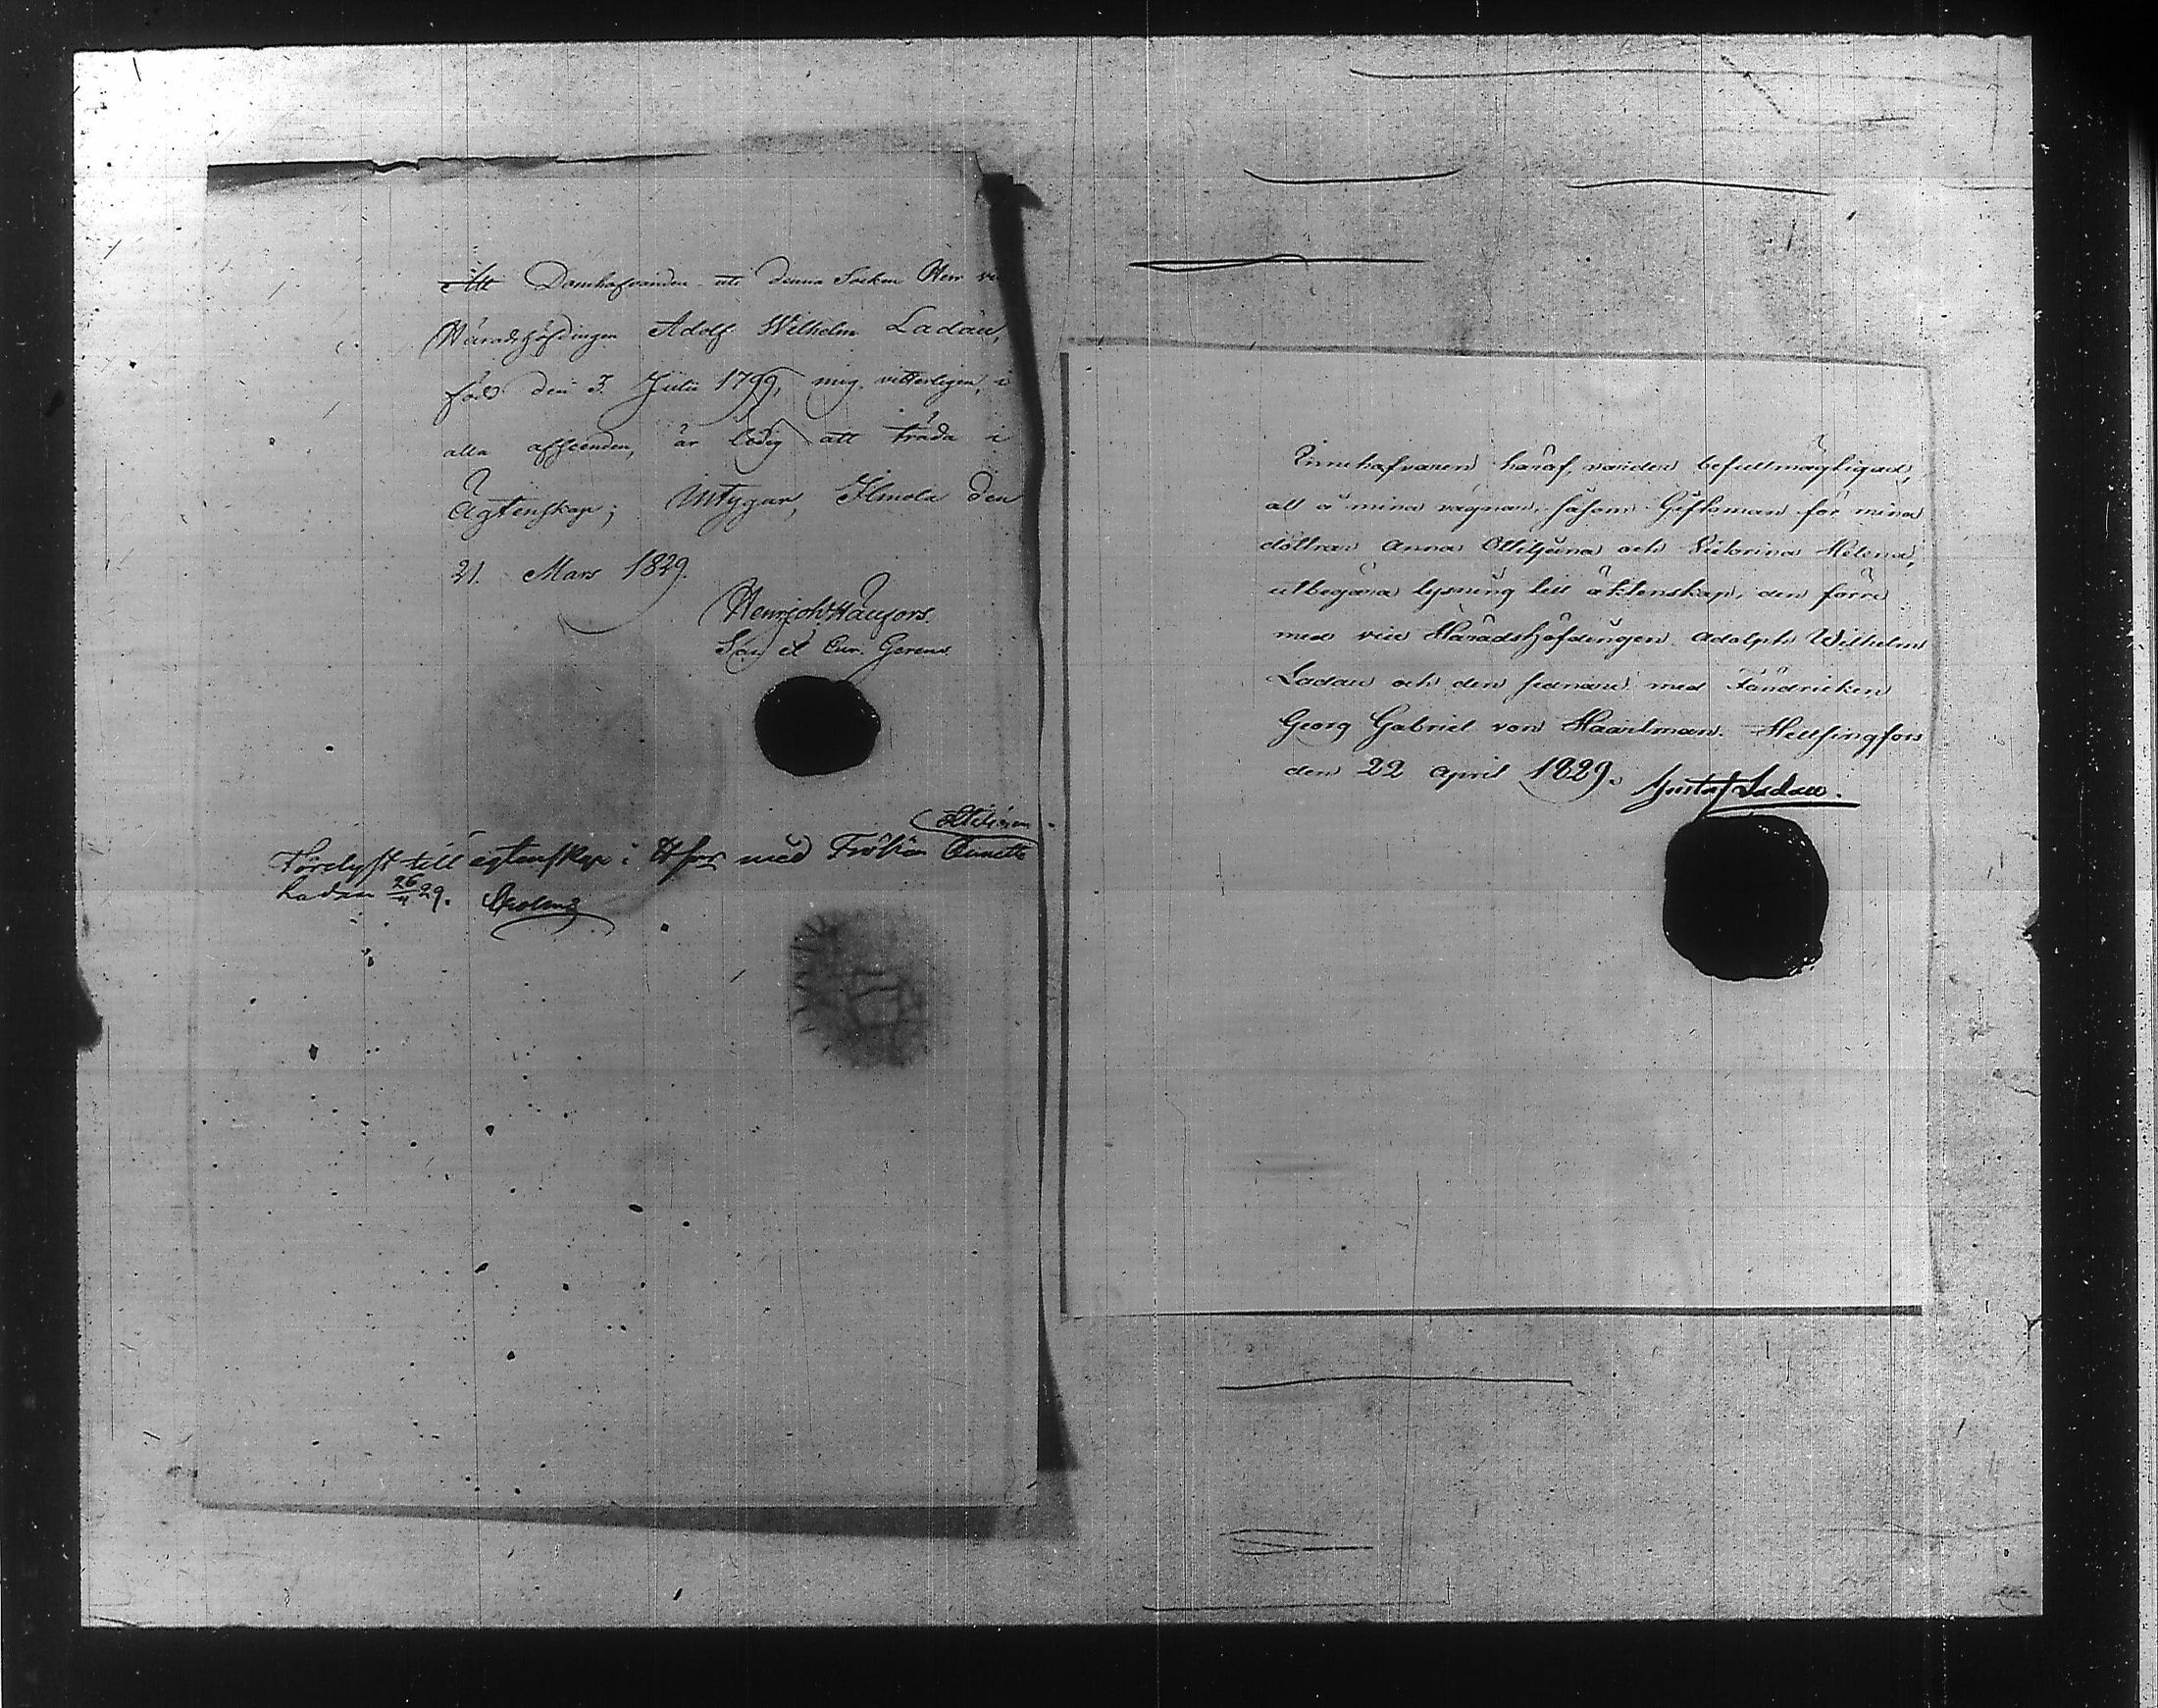 Att Domhafvanden uti denna Socken Herr vice
Häradshöfdingen Adolf Wilhelm Ladau,
föd den 3. Julii 1799, mig vetterligen, i
alla afseenden, är ledig att träda i
Ägtenskap; Intygar, Ilmola den
21. Mars 1829.
Henrich Haufors.
Sac. et Cur. Gerens
Ottiliana
Förelyst till egtenskap i H:fors med Fröken Annette
Ladau 26/4 29.
Innehafvaren häraf, varder befullmägtigad,
att å mina vägnar, såsom Giftoman för mina
döttrar Anna Ottiljana och Victorina Helena,
utbegära lysning till äktenskap, den förra
med vice Häradshöfdingen Adolph Wilhelm
Ladau och den sednare med Fändricken
Georg Gabriel von Haartman. Hellsingfors
den 22 April 1829. Gustaf Ladau.